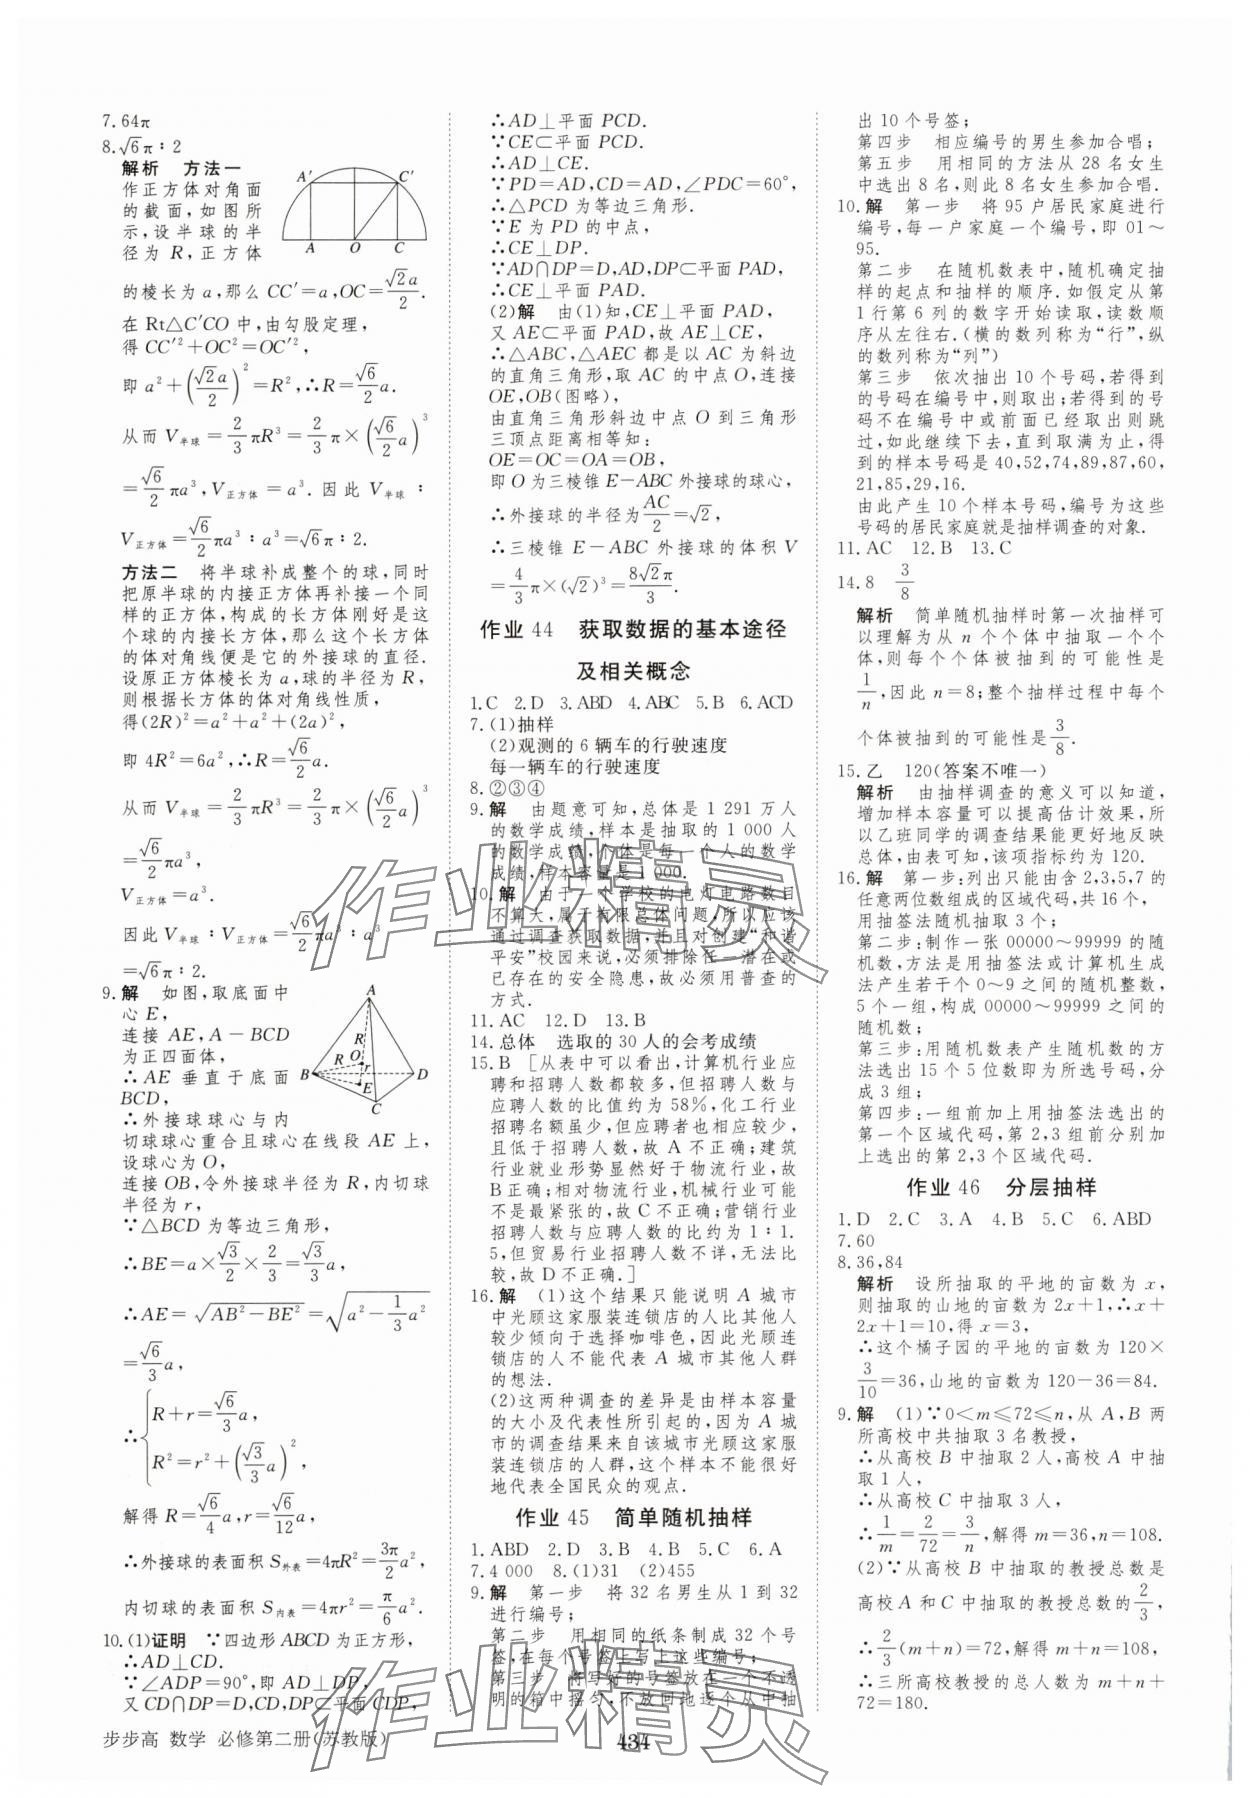 7.64π
8.√6π∶2
解析 方法一
作正方体对角面
的截面,如图所
示,设半球的半
径为 R,正方体
A′ C′
A O C
的棱长为 a,那么 CC′=a,OC=√2a/2.
在 Rt△C′CO 中,由勾股定理,
得 CC′²+OC²=OC′²,
即 a²+(√2a/2)²=R²,∴R=√6/2a.
从而 V半球=2/3πR³=2/3π×(√6/2a)³
=√6/2πa³,V正方体=a³.因此 V半球∶
V正方体=√6/2πa³∶a³=√6π∶2.
方法二 将半球补成整个的球,同时
把原半球的内接正方体再补接一个同
样的正方体,构成的长方体刚好是这
个球的内接长方体,那么这个长方体
的体对角线便是它的外接球的直径.
设原正方体棱长为 a,球的半径为 R,
则根据长方体的体对角线性质,
得(2R)²=a²+a²+(2a)²,
即 4R²=6a²,∴R=√6/2a.
从而 V半球=2/3πR³=2/3π×(√6/2a)³
=√6/2πa³,
V正方体=a³.
因此 V半球∶V正方体=√6/2πa³∶a³
=√6π∶2.
9.解 如图,取底面中
心 E,
连接 AE,A-BCD
为正四面体,
∴AE 垂直于底面
BCD,
∴外接球球心与内
A
R
R O r
B D
E
C
切球球心重合且球心在线段 AE 上,
设球心为 O,
连接 OB,令外接球半径为 R,内切球
半径为 r,
∵△BCD 为等边三角形,
∴BE=a×√3/2×2/3=√3/3a,
∴AE=√(AB²-BE²)=√(a²-1/3a²)
=√6/3a,
∴{R+r=√6/3a,
R²=r²+(√3/3a)²
解得 R=√6/4a,r=√6/12a,
∴外接球的表面积 S外表=4πR²=3π/2a²;
内切球的表面积 S内表=4πr²=π/6a².
10.(1)证明 ∵四边形 ABCD 为正方形,
∴AD⊥CD.
∵∠ADP=90°,∴AD⊥DP.
又 CD∩DP=D,CD,DP⊂平面 CDP,
∴AD⊥平面 PCD.
∵CE⊂平面 PCD.
∴AD⊥CE.
∵PD=AD,CD=AD,∠PDC=60°,
∴△PCD 为等边三角形.
∵E 为 PD 的中点,
∴CE⊥DP.
∵AD∩DP=D,AD,DP⊂平面 PAD,
∴CE⊥平面 PAD.
(2)解 由(1)知,CE⊥平面 PAD,
又 AE⊂平面 PAD,故 AE⊥CE,
∴△ABC,△AEC 都是以 AC 为斜边
的直角三角形,取 AC 的中点 O,连接
OE,OB(图略),
由直角三角形斜边中点 O 到三角形
三顶点距离相等知:
OE=OC=OA=OB,
即 O 为三棱锥 E-ABC 外接球的球心,
∴外接球的半径为AC/2=√2,
∴三棱锥 E-ABC 外接球的体积 V
=4/3π×(√2)³=8√2π/3.
作业 44 获取数据的基本途径
及相关概念
1.C 2.D 3.ABD 4.ABC 5.B 6.ACD
7.(1)抽样
(2)观测的 6 辆车的行驶速度
每一辆车的行驶速度
8.②③④
9.解 由题意可知,总体是 1 291 万人
的数学成绩,样本是抽取的 1 000 人
的数学成绩,个体是每一个人的数学
成绩,样本容量是 1 000.
10.解 由于一个学校的电灯电路数目
不算大,属于有限总体问题,所以应该
通过调查获取数据,并且对创建“和谐
平安”校园来说,必须排除任一潜在或
已存在的安全隐患,故必须用普查的
方式.
11.AC 12.D 13.B
14.总体 选取的 30 人的会考成绩
15.B [从表中可以看出,计算机行业应
聘和招聘人数都较多,但招聘人数与
应聘人数的比值约为 58%,化工行业
招聘名额虽少,但应聘者也相应较少,
且低于招聘人数,故 A 不正确;建筑
行业就业形势显然好于物流行业,故
B正确;相对物流行业,机械行业可能
不是最紧张的,故 C 不正确;营销行业
招聘人数与应聘人数的比约为 1∶1.
5,但贸易行业招聘人数不详,无法比
较,故 D 不正确.]
16.解 (1)这个结果只能说明 A 城市
中光顾这家服装连锁店的人比其他人
较少倾向于选择咖啡色,因此光顾连
锁店的人不能代表 A 城市其他人群
的想法.
(2)这两种调查的差异是由样本容量
的大小及代表性所引起的,因为 A 城
市的调查结果来自该城市光顾这家服
装连锁店的人群,这个样本不能很好
地代表全国民众的观点.
作业 45 简单随机抽样
1.ABD 2.D 3.B 4.B 5.C 6.A
7.4 000 8.(1)31 (2)455
9.解 第一步 将 32 名男生从 1 到 32
进行编号;
第二步 用相同的纸条制成 32 个号
签,在每个号签上写上这些编号;
第三步 将写好的号签放在一个不透
明的箱中摇匀,不放回地逐个从中抽
出 10 个号签;
第四步 相应编号的男生参加合唱;
第五步 用相同的方法从 28 名女生
中选出 8 名,则此 8 名女生参加合唱.
10.解 第一步 将 95 户居民家庭进行
编号,每一户家庭一个编号,即 01～
95.
第二步 在随机数表中,随机确定抽
样的起点和抽样的顺序.如假定从第
1 行第 6 列的数字开始读取,读数顺
序从左往右.(横的数列称为“行”,纵
的数列称为“列”)
第三步 依次抽出 10 个号码,若得到
的号码在编号中,则取出;若得到的号
码不在编号中或前面已经取出则跳
过,如此继续下去,直到取满为止,得
到的样本号码是 40,52,74,89,87,60,
21,85,29,16.
由此产生 10 个样本号码,编号为这些
号码的居民家庭就是抽样调查的对象.
11.AC 12.B 13.C
14.8 3/8
解析 简单随机抽样时第一次抽样可
以理解为从 n 个个体中抽取一个个
体,则每个个体被抽到的可能性是
1/n,因此 n=8;整个抽样过程中每个
个体被抽到的可能性是3/8.
15.乙 120(答案不唯一)
解析 由抽样调查的意义可以知道,
增加样本容量可以提高估计效果,所
以乙班同学的调查结果能更好地反映
总体,由表可知,该项指标约为 120.
16.解 第一步:列出只能由含 2,3,5,7 的
任意两位数组成的区域代码,共 16 个,
用抽签法随机抽取 3 个;
第二步:制作一张 00000～99999 的随
机数,方法是用抽签法或计算机生成
法产生若干个 0～9 之间的随机整数,
5 个一组,构成 00000～99999 之间的
随机数;
第三步:用随机数表产生随机数的方
法选出 15 个 5 位数即为所选号码,分
成 3 组;
第四步:一组前加上用抽签法选出的
第一个区域代码,第 2,3 组前分别加
上选出的第 2,3 个区域代码.
作业 46 分层抽样
1.D 2.C 3.A 4.B 5.C 6.ABD
7.60
8.36,84
解析 设所抽取的平地的亩数为 x,
则抽取的山地的亩数为 2x+1,∴x+
2x+1=10,得 x=3,
∴这个橘子园的平地的亩数为 120×
3/10=36,山地的亩数为 120-36=84.
9.解 (1)∵0<m≤72≤n,从 A,B 两
所高校中共抽取 3 名教授,
∴从高校 B 中抽取 2 人,从高校 A 中抽
取 1 人,
∴从高校 C 中抽取 3 人,
∴1/m=2/72=3/n,解得 m=36,n=108.
(2)∵从高校 B 中抽取的教授总数是
高校 A 和 C 中抽取的教授总数的2/3,
∴2/3(m+n)=72,解得 m+n=108,
∴三所高校教授的总人数为 m+n+
72=180.
作业精灵
作业精灵
步步高 数学 必修第二册(苏教版)
434